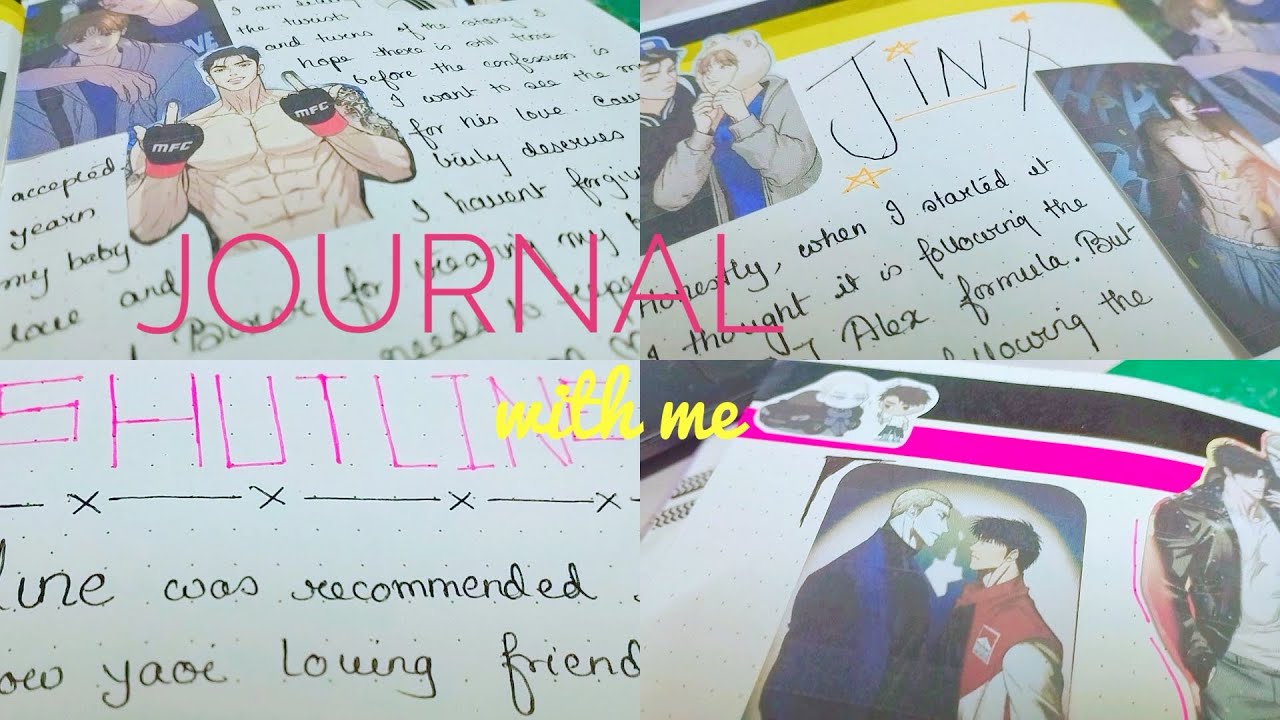 I am
the twists
and turns of the story I
hope there is still time
before the confession is
I want to see the
for his love.
truly deserves
I havent
MFC
MFC
accepted
yearn
my baby
love and
Boxer for my
needs to
JINX
Honestly, when I started it
I thought it is following the
Alex formula. But
the
JOURNAL
with me
SHUTLINE
line was recommended
yaoi loving friend